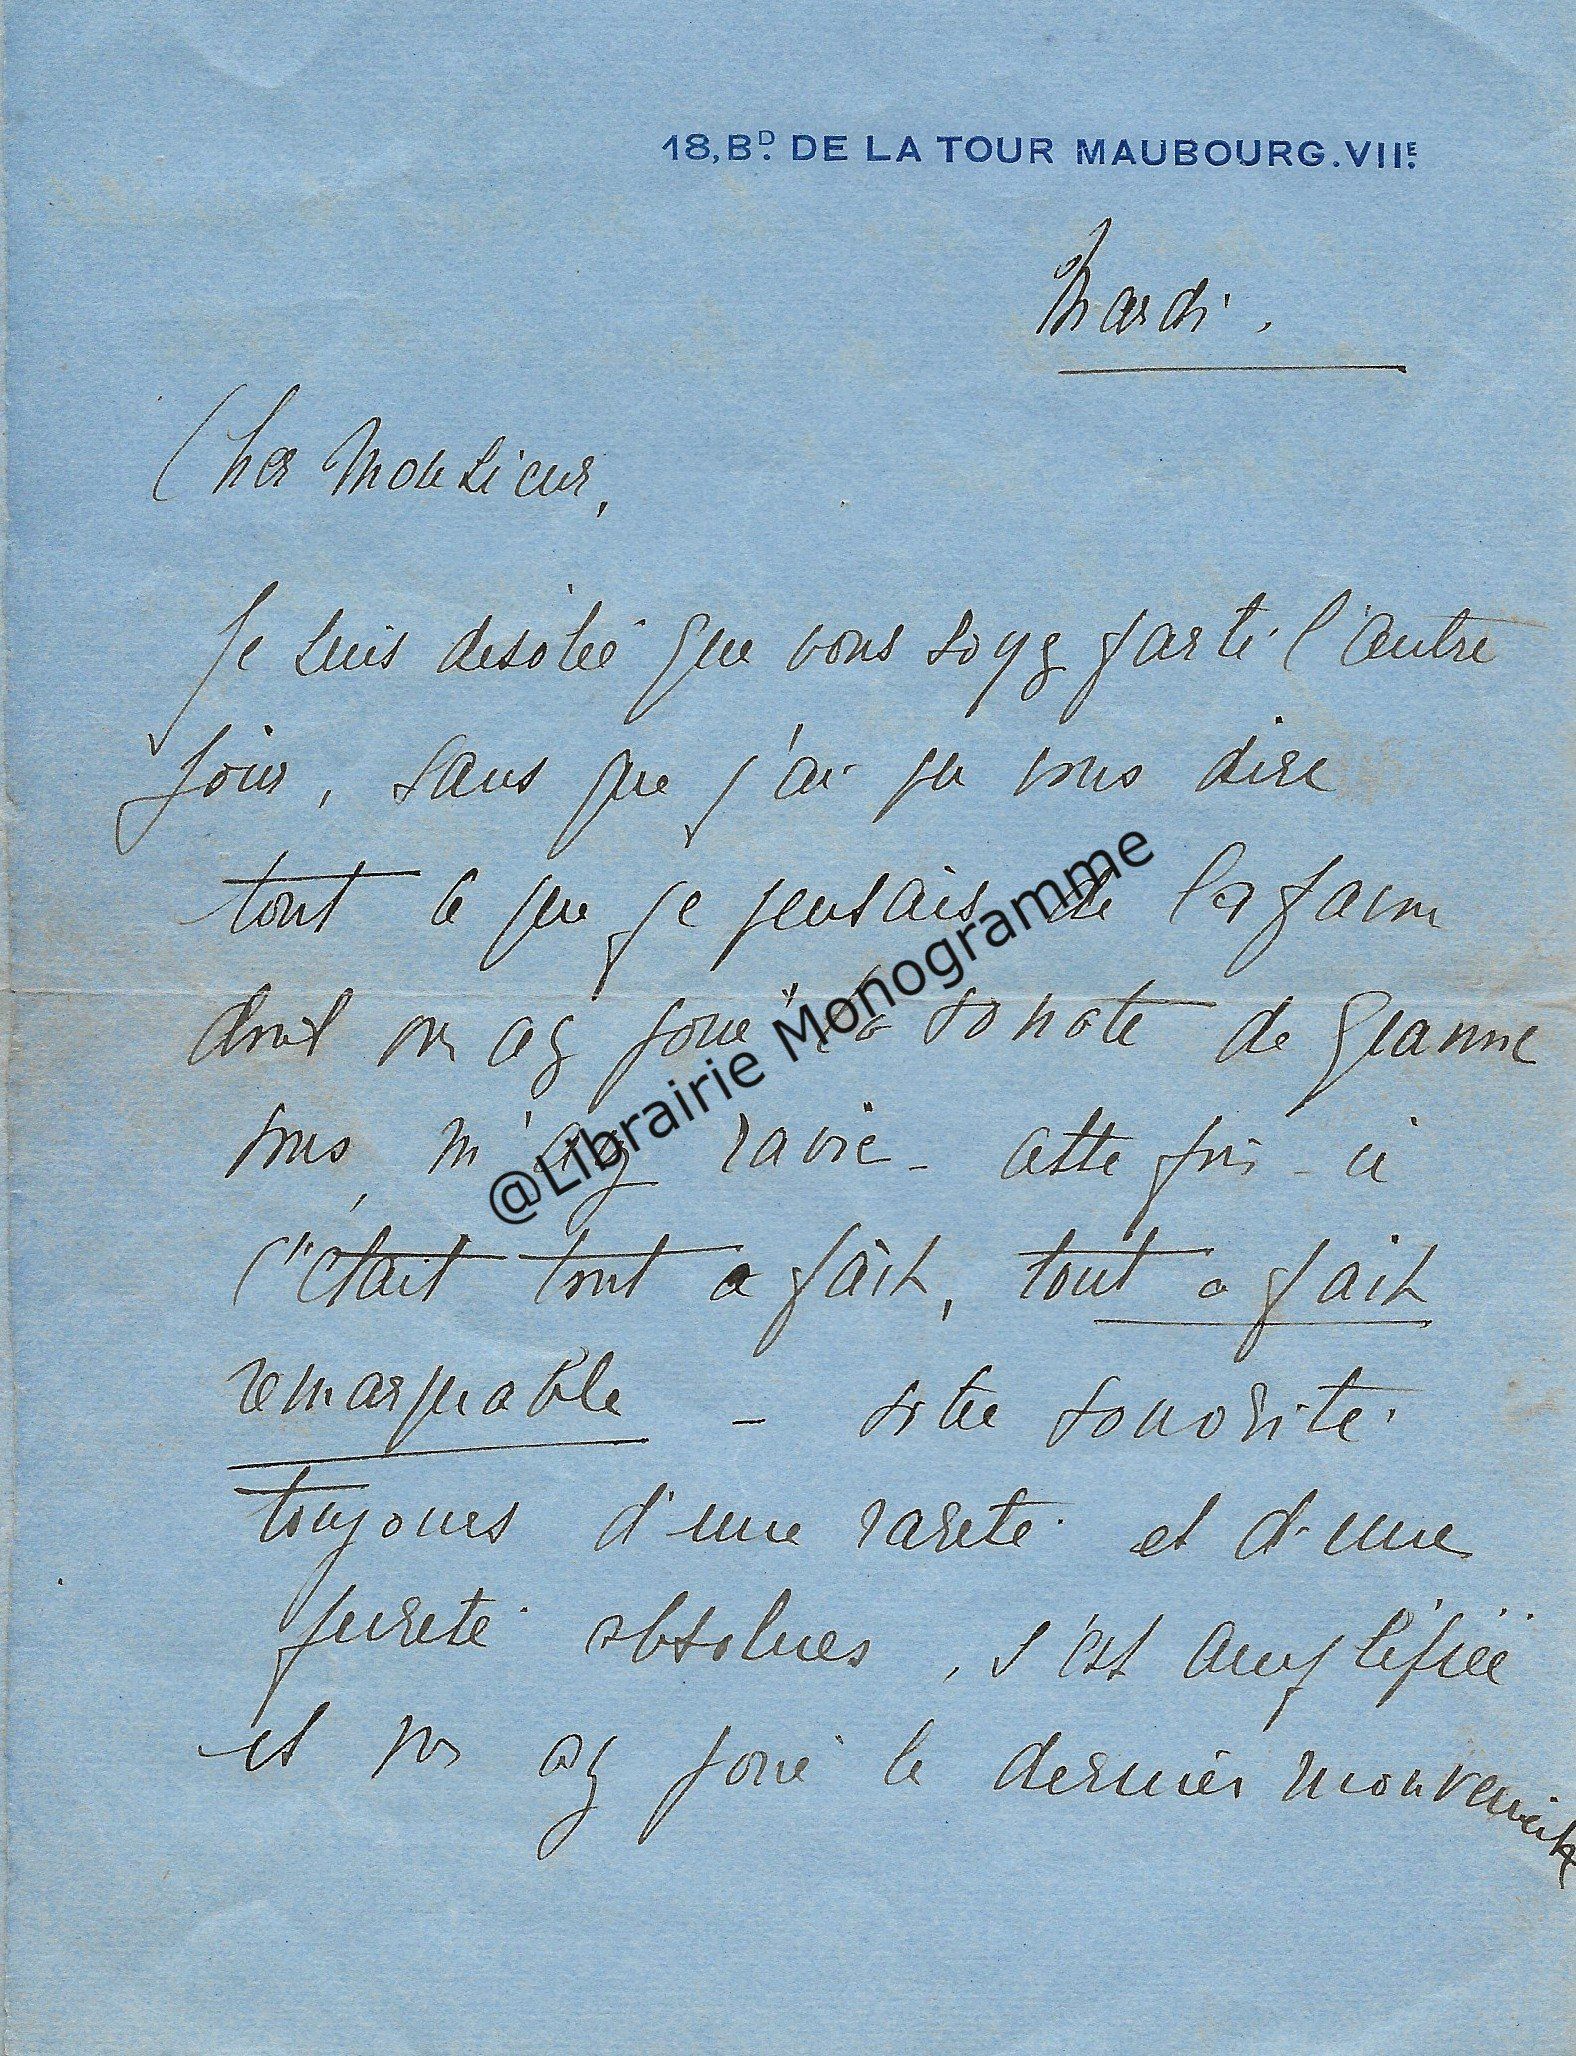 18, Bᴰ. DE LA TOUR MAUBOURG. VIIᴱ.
Mardi.
Cher Monsieur,
Je suis désolée que vous soyez parti l'autre
jour, sans que j'ai pu vous dire
tout ce que je pensais de la façon
dont vous avez joué la sonate de Jeanne
vous m'avez ravie - cette fois-ci
c'était tout a fait, tout a fait
remarquable - votre sonorité
toujours d'une rareté et d'une
pureté absolues, s'est amplifiée
et vous avez joué le dernier mouvement
@Librairie Monogramme